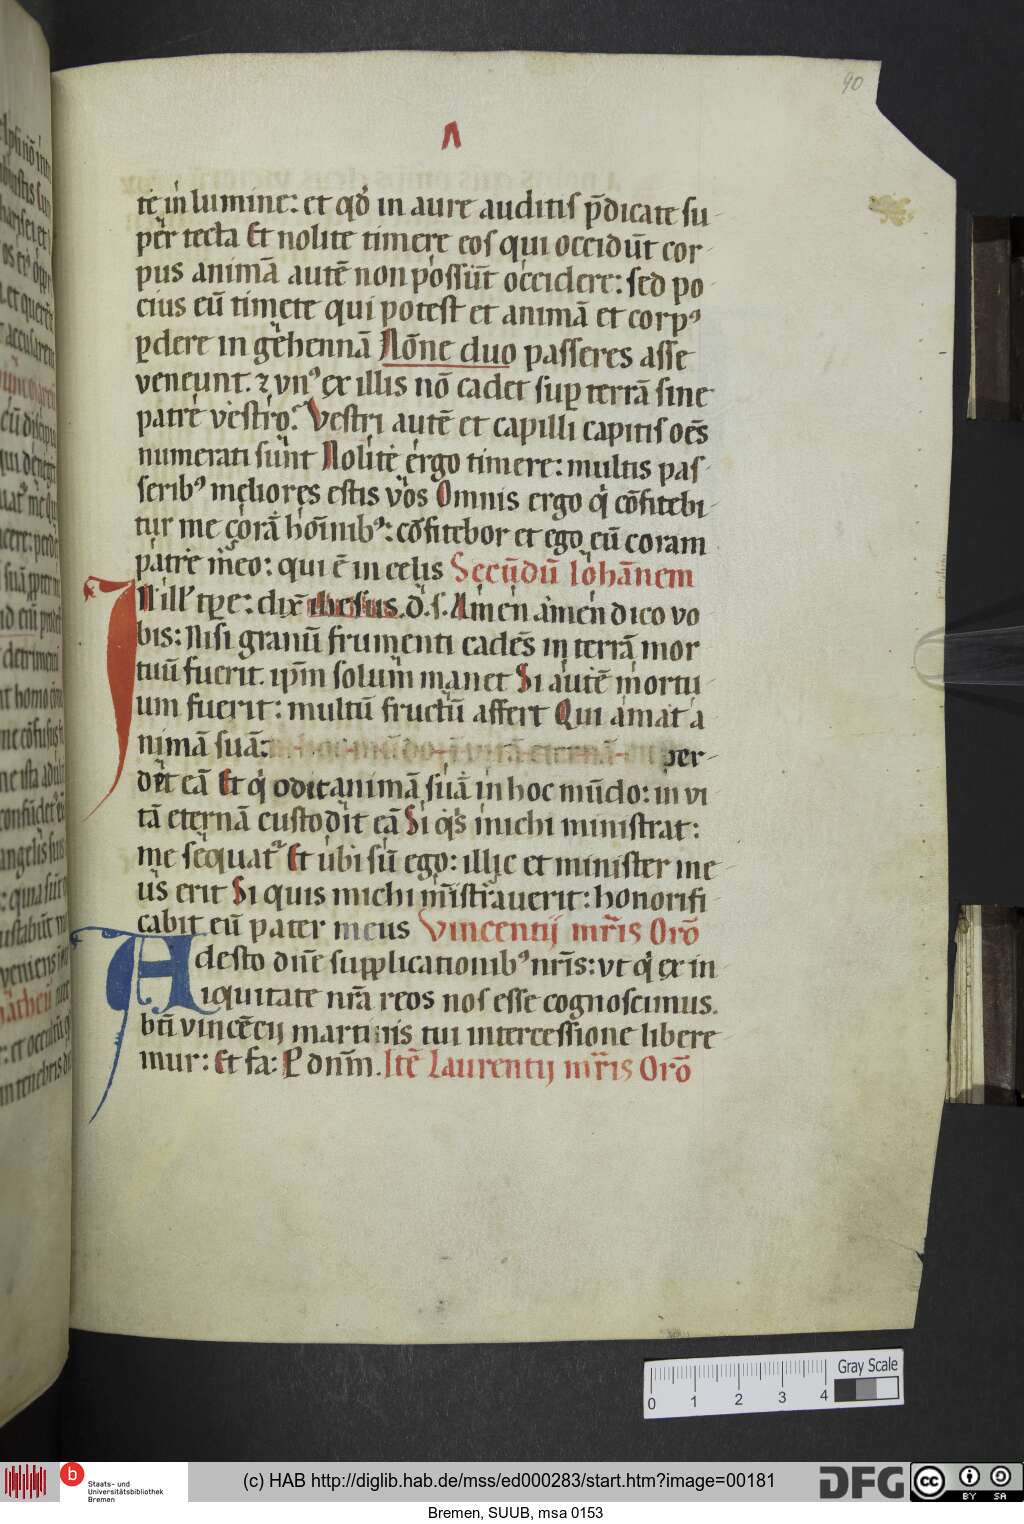 90
Λ
te in lumine: et qđ in aure auditis p̄dicate su-
per tecta Et nolite timere eos qui occidūt cor-
pus animā autē non possūt occidere: sed po
cius eū timete qui potest et animā et corpꝰ
ꝑdere in gehennā Nōne duo passeres asse
veneunt. ⁊ vnꝰ ex illis nō cadet suꝑ terrā sine
patre vestro. Vestri autē et capilli capitis oēs
numerati sunt Nolite ergo timere: multis pas-
seribꝰ meliores estis vos Omnis ergo qͥ cōfitebi-
tur me corā hōinibꝰ: cōfitebor et ego eū coram
patre meo: qui ē in celis Secūdū Johānem
IN ill' tꝑe: dix̄ ihesus. d. s. Amen amen dico vo
bis: Nisi granū frumenti cadēs in terrā mor
tuū fuerit. ipm̄ solum manet Si autē mortu-
um fuerit: multū fructū affert Qui amat a
nimā suā: per-
det eā Et qͥ odit animā suā in hoc mūdo: in vi
tā eternā custodit eā Si qͥs michi ministrat:
me sequat᷑ Et ubi sū ego: illic et minister me
us erit Si quis michi m̄istrauerit: honorifi
cabit eū pater meus Vincentij mr̄is Orō
Adesto dn̄e supplicationibꝰ nr̄is: vt qͥ ex in
iquitate nr̄a reos nos esse cognoscimus.
bt̄i vincēcij martiris tui intercessione libere
mur: Et fa: P dnm̄. Itē Laurentij mr̄is Orō
Gray Scale
0 1 2 3 4
b Staats- und
Universitätsbibliothek
Bremen
(c) HAB http://diglib.hab.de/mss/ed000283/start.htm?image=00181
DFG
cc BY SA
Bremen, SUUB, msa 0153